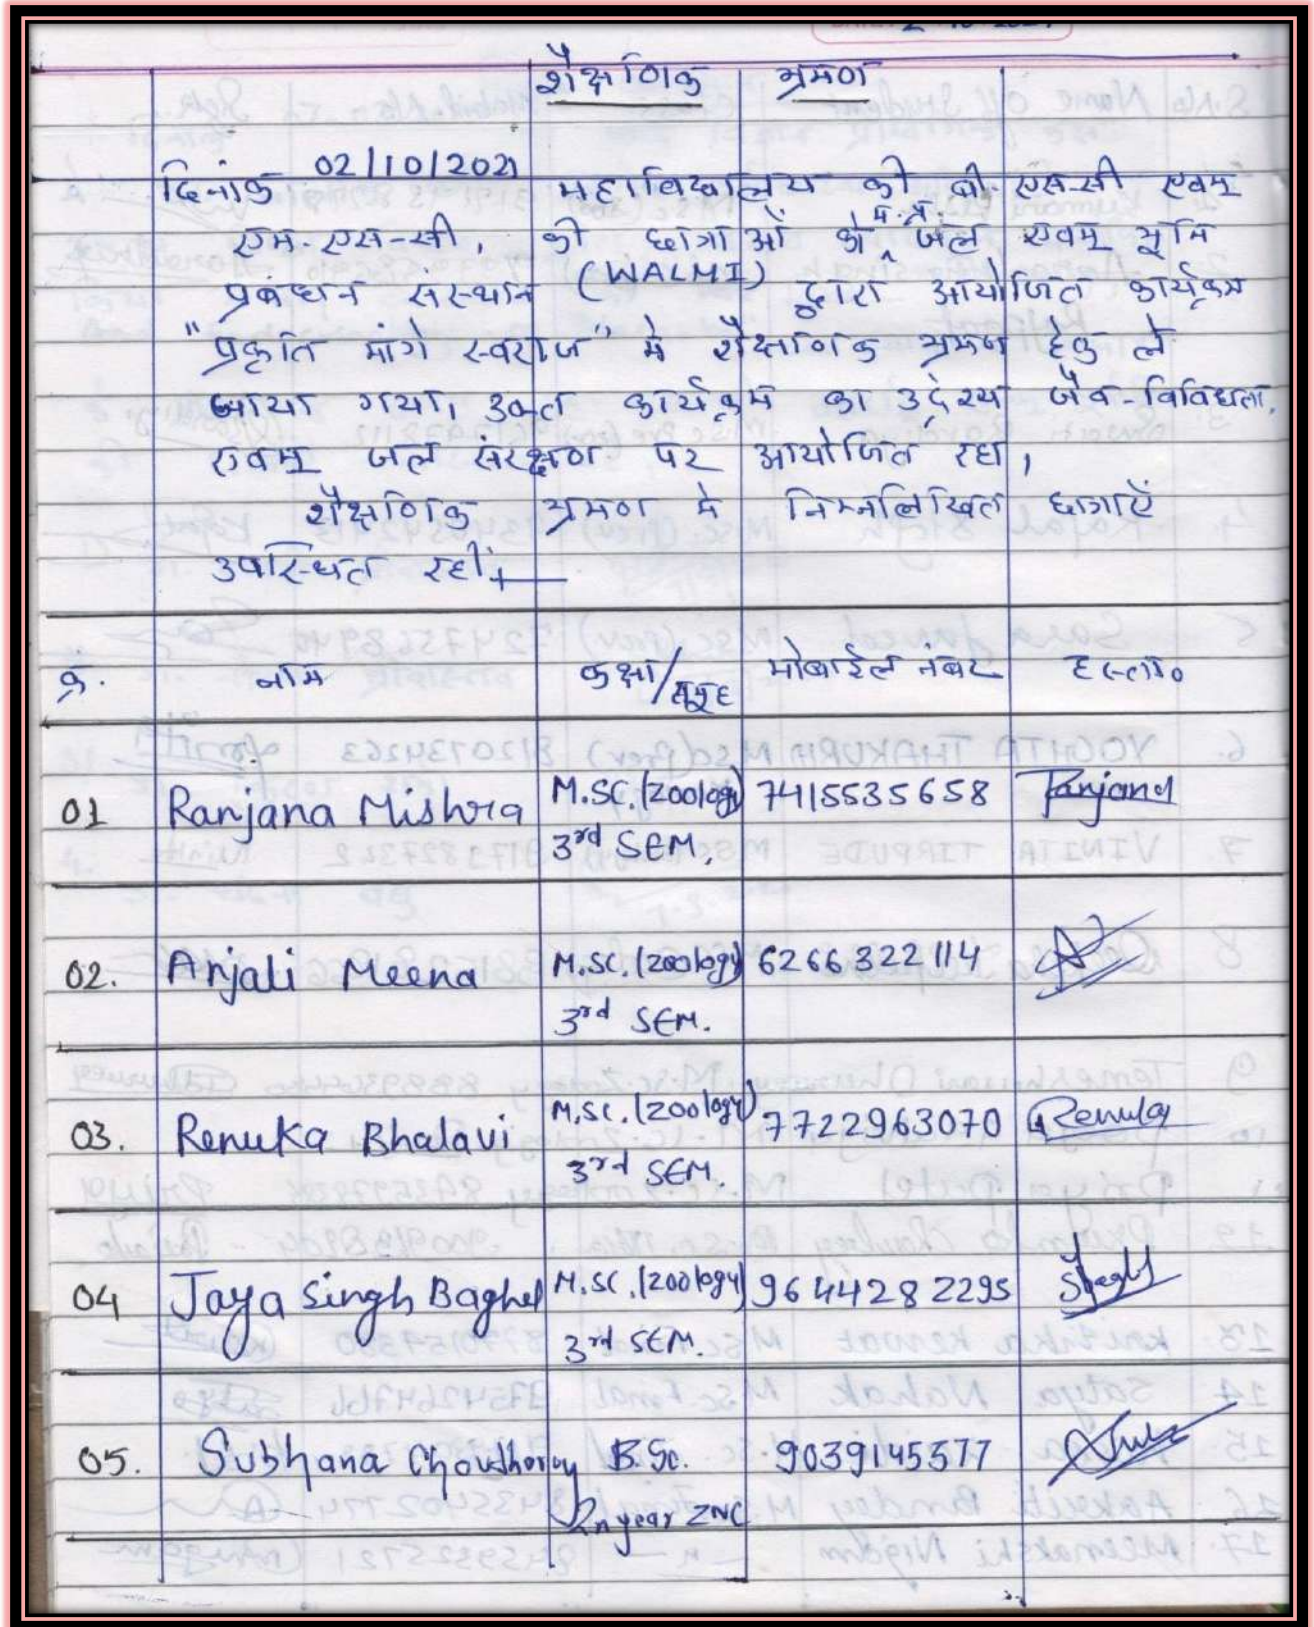 शैक्षणिक भ्रमण
दिनांक 02/10/2021 महाविद्यालय की बी. एस-सी एवम्
एम. एस-सी, की छात्राओं को म.प्र. जल एवम् भूमि
प्रबंधन संस्थान (WALMI) द्वारा आयोजित कार्यक्रम
"प्रकृति मांगे स्वराज" मे शैक्षणिक भ्रमण हेतु ले
जाया गया, उक्त कार्यक्रम का उद्देश्य जैव-विविधता,
एवम् जल संरक्षण पर आयोजित रहा,
शैक्षणिक भ्रमण मे निम्नलिखित छात्राएँ
उपस्थित रही;
क्र. नाम कक्षा/समूह मोबाईल नंबर हस्ता०
01 Ranjana Mishra M.SC.(zoology) 7415535658 Ranjana
3rd SEM,
02. Anjali Meena M.SC.(zoology) 6266322114
3rd SEM.
03. Renuka Bhalavi M.SC.(zoology) 7722963070 Renuka
3rd SEM.
04 Jaya Singh Baghel M.SC.(zoology) 9644282295
3rd SEM.
05. Subhana Choudharay B.Sc. 9039145377
2n year ZNC